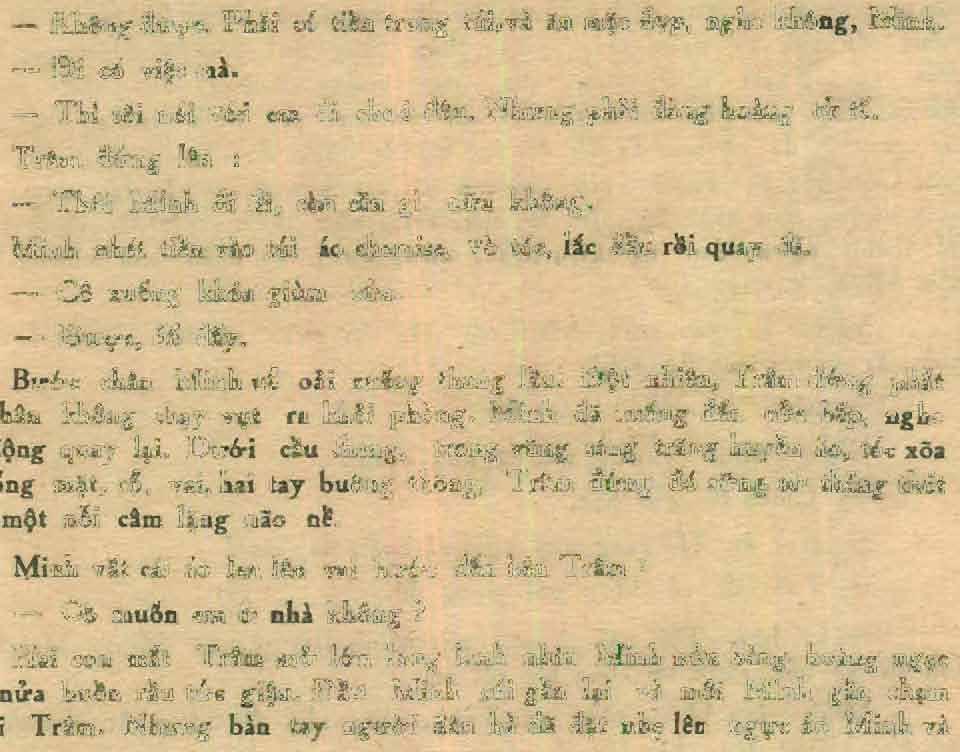 — Không được. Phải có tiền trong túi, và ăn mặc đẹp, nghe không, Minh.
— Đi có việc mà.
— Thì tôi nói với em đi cho đến. Nhưng phải đàng hoàng tử tế.
Trâm đứng lên :
— Thôi Minh đi đi, còn cần gì nữa không.
Minh nhét tiền vào túi áo chemise, vò tóc, lắc đầu rồi quay đi.
— Cô xuống khóa giùm
— Được, để đấy.
Bước chân Minh về xuống thang lầu. Đột nhiên, Trâm đứng phắt
chân không chạy vụt ra khỏi phòng. Minh đã xuống đến cửa bếp, nghe
động quay lại. Dưới cầu thang, trong vùng sáng trắng huyền ảo, tóc xõa
mặt, cổ, vai, hai tay buông thõng, Trâm đứng đó
một nỗi câm lặng não nề.
Minh vắt cái áo len lên vai bước đến bên Trâm :
— Cô muốn em ở nhà không ?
Hai con mắt Trâm mở lớn long lanh nhìn Minh nửa bàng hoàng
nửa buồn rầu tức giận. Đầu Minh cúi gần lại và môi Minh gần chạm
Trâm. Nhưng bàn tay người đàn bà đã đặt nhẹ lên ngực áo Minh và